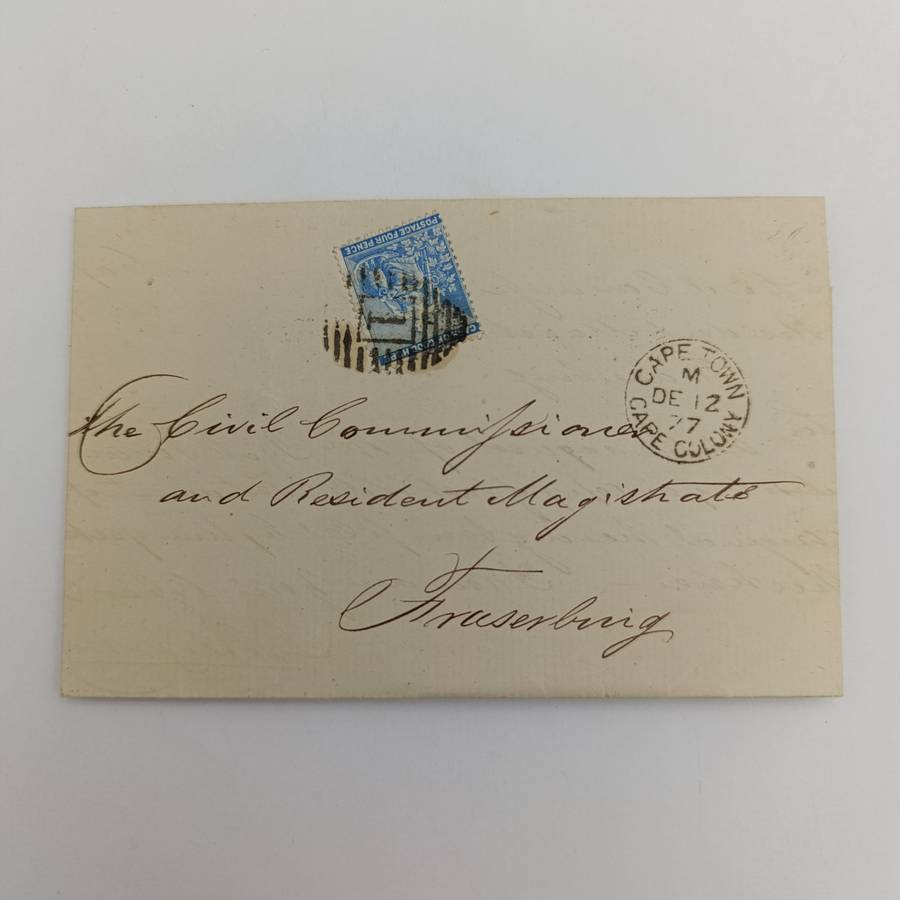 POSTAGE FOUR PENCE
CAPE OF GOOD HOPE
1
CAPE TOWN
M
DE 12
77
CAPE COLONY
The Civil Commissioner
and Resident Magistrate
Fraserburg